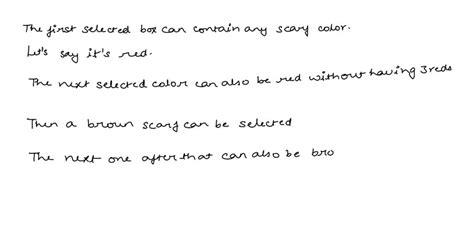 The first selected box can contain any scarf color.
Let's say it's red.
The next selected color can also be red without having 3 reds
Then a brown scarf can be selected
The next one after that can also be bro